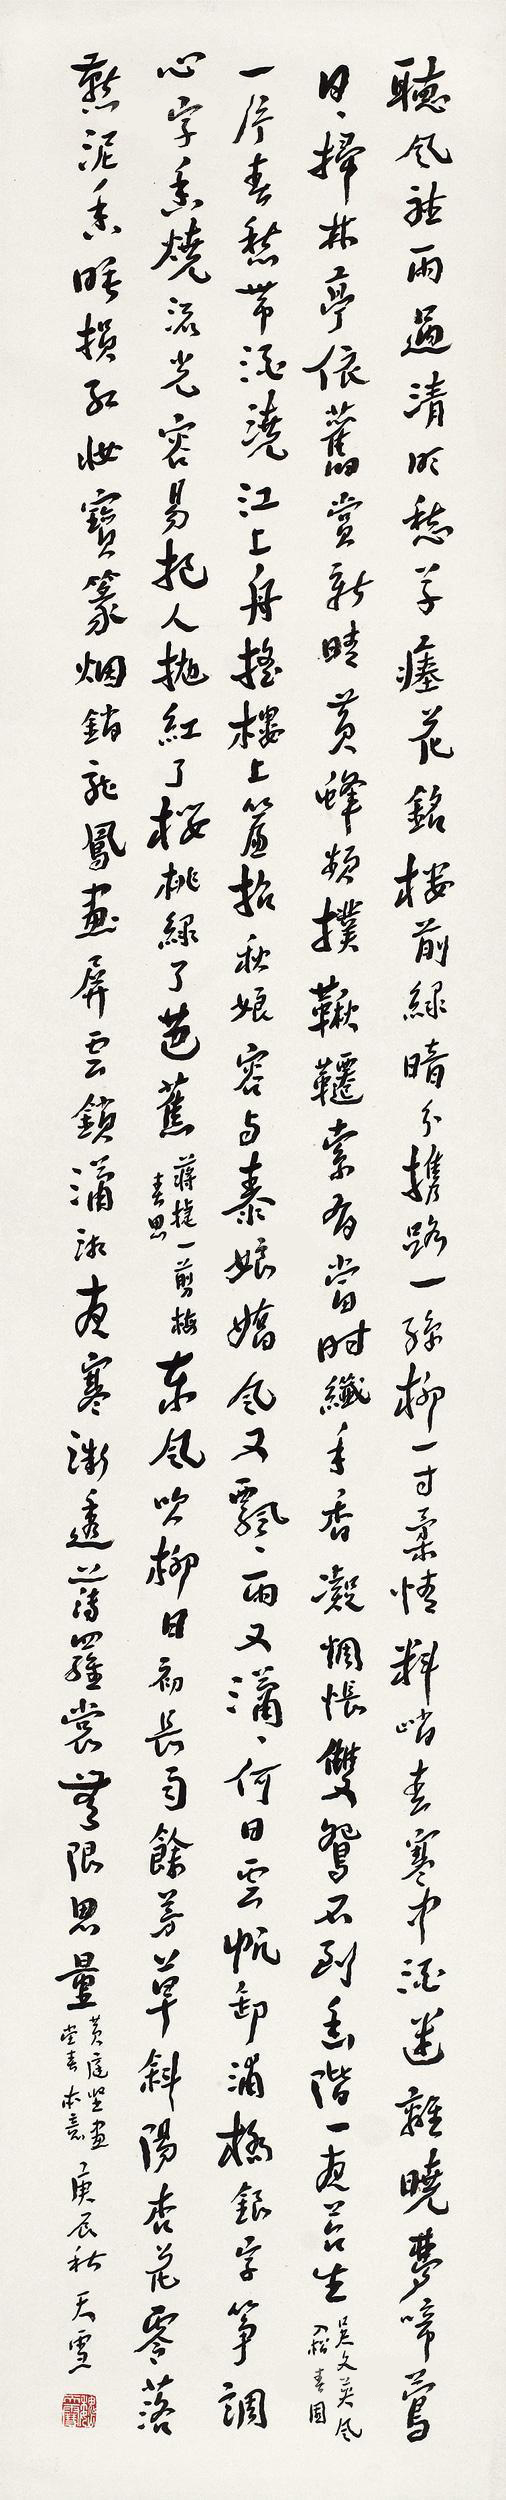 聽風聽雨過清明愁草瘞花銘樓前綠暗分攜路一絲柳一寸柔情料峭春寒中酒迷離曉夢啼鶯
日、掃林亭依舊賞新晴黃蜂頻撲鞦韆索有當時纖手香凝惆悵雙鴛不到階一夜苔生吳文英風入松春園
一片春愁帶酒澆江上舟搖樓上簾招秋娘容与泰娘嬌風又飄、雨又瀟、何日雲帆卸浦橋銀字箏調
心字香燒流光容易把人拋紅了櫻桃綠了芭蕉蔣捷一剪梅春思東風吹柳日初長雨餘芳草斜陽杏花零落
燕泥香睡損紅妝寶篆烟銷龍鳳畫屏雲鎖瀟湘夜寒微透薄羅裳無限思量黃庭堅畫堂春本意庚辰秋天雪